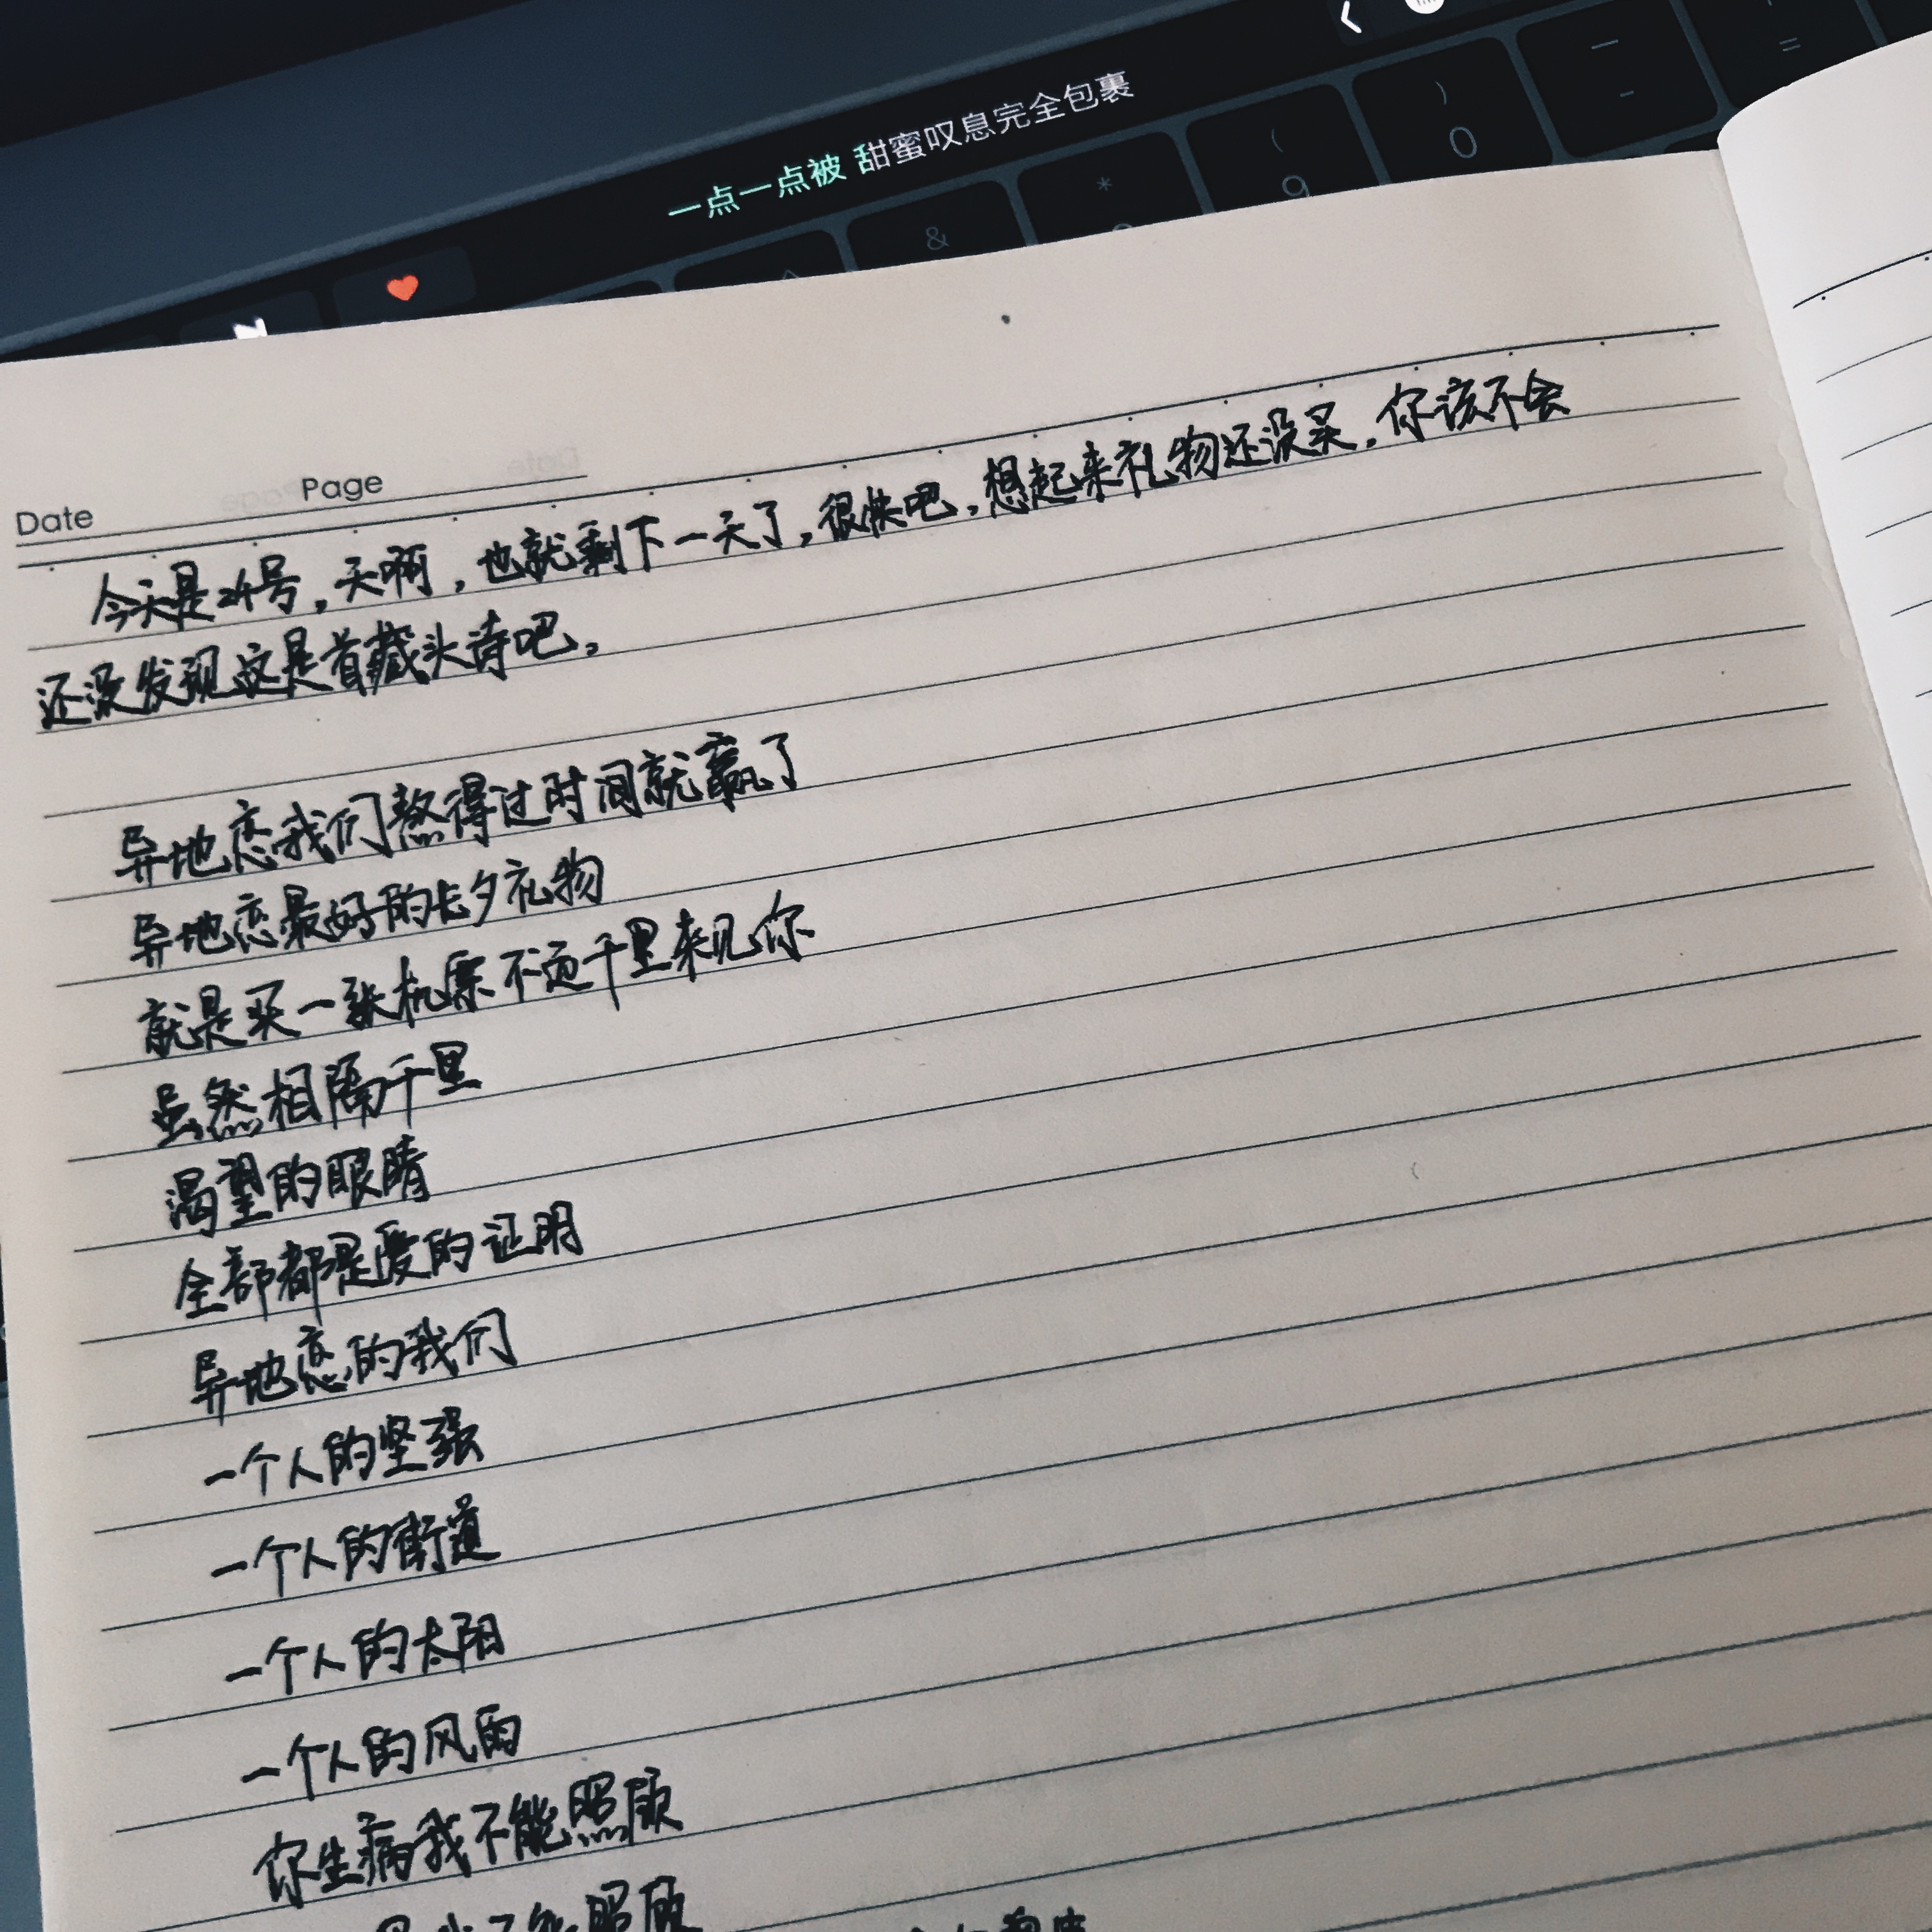 一点一点被 甜蜜叹息完全包裹
&
*
(
9
)
0
=
Date
Page
今天是24号,天啊,也就剩下一天了,很快吧,想起来礼物还没买,你该不会
还没发现这是首藏头诗吧。
异地恋我们熬得过时间就赢了
异地恋最好的七夕礼物
就是买一张机票不远千里来见你
虽然相隔千里
渴望的眼睛
全部都是爱的证明
异地恋的我们
一个人的坚强
一个人的街道
一个人的太阳
一个人的风雨
你生病我不能照顾
我不能照顾